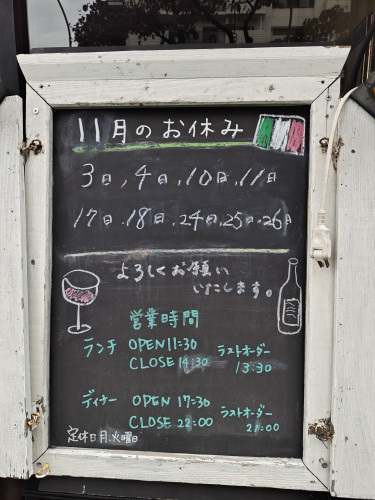 11月のお休み
3日、4日、10日、11日
17日、18日、24日、25日、26日
よろしくお願い
いたします。
営業時間
ランチ OPEN 11:30 ラストオーダー
CLOSE 14:30 13:30
ディナー OPEN 17:30 ラストオーダー
CLOSE 22:00 21:00
定休日月、火曜日